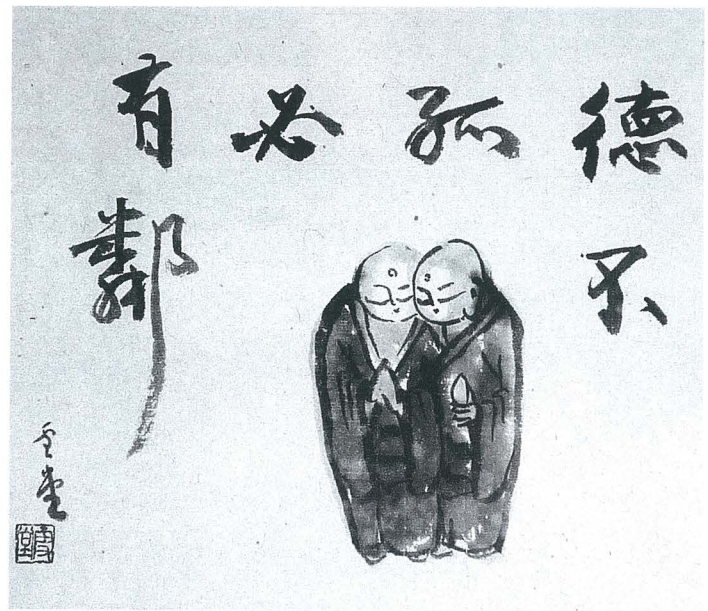 德不
孤
必
有鄰